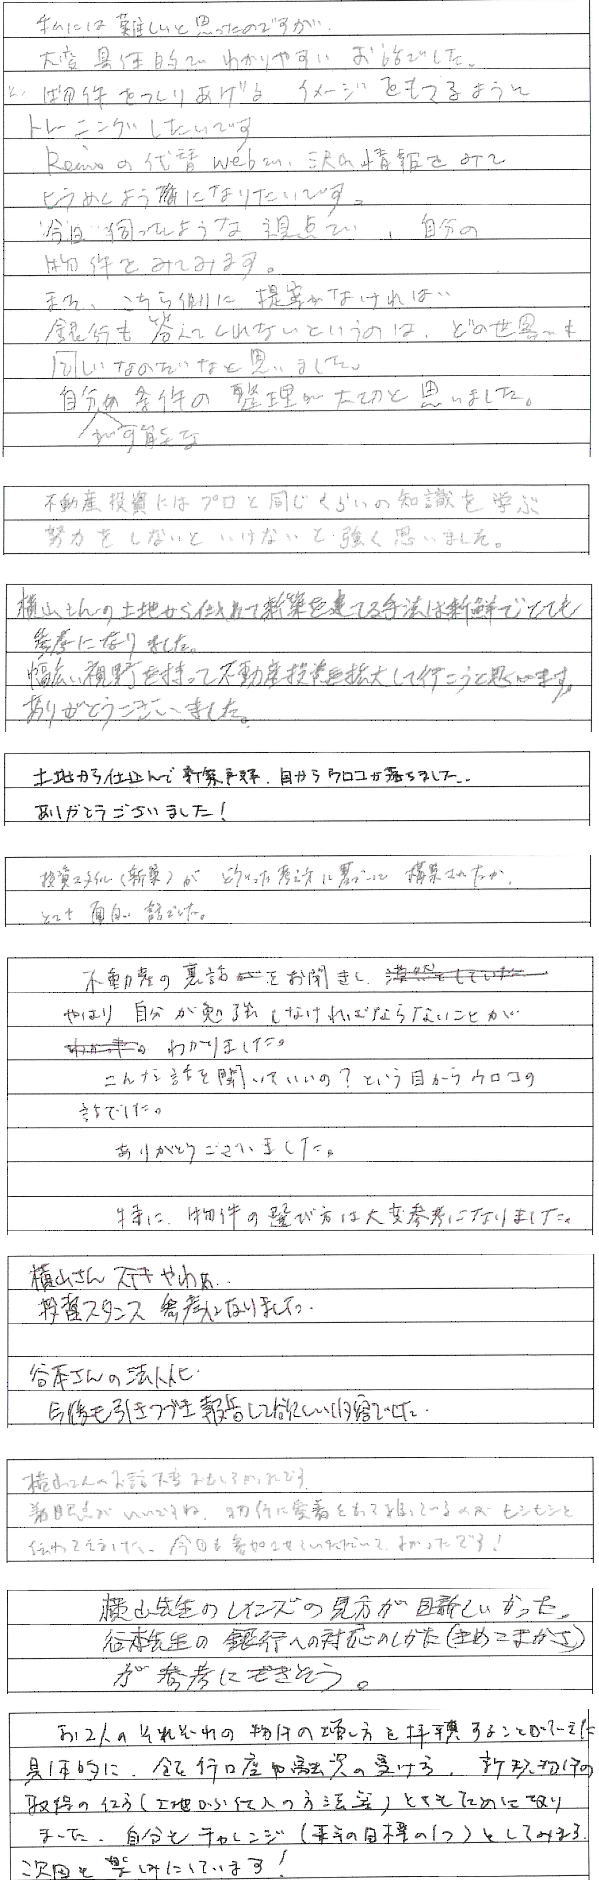 私には難しいと思ったのですが、
大変具体的でわかりやすいお話でした。
物件をつくりあげる イメージをもてるように
トレーニングしたいです
Reinsの代替webで、沢山情報をみて
ようになりたいです。
今日伺ったような視点で、自分の
物件をみてみます。
また、こちら側に提案がなければ
銀行も答えてくれないというのは、どの世界も
同じなのだなと思いました。
自分の条件の整理が大切と思いました。
が可能な
不動産投資にはプロと同じくらいの知識を学ぶ
努力をしないといけないと強く思いました。
横山さんの土地から仕入れて新築を建てる手法は新鮮でとても
参考になりました。
幅広い視野を持って不動産投資を拡大して行こうと思います。
ありがとうございました。
土地から仕込んで新築戸建、目からウロコが落ちました。
ありがとうございました！
投資スタイル（新築）が どういった考え方に基づいて 構築されたか、
とても面白い話でした。
不動産の裏話をお聞きし、
やはり自分が勉強しなければならないことが
わかりました。
こんな話を聞いていいの？という目からウロコの
話でした。
ありがとうございました。
特に、物件の選び方は大変参考になりました。
横山さん ステキやわぁ..
投資スタンス 参考になりました。
谷本さんの法人化
今後も引きつづき報告して欲しい内容でした。
横山さんのお話大変おもしろかったです。
着眼点がいいですね。物件に愛着をもって扱っているのがヒシヒシと
伝わってきました。今回も参加させていただいて、よかったです！
横山先生のレインズの見方が目新しかった。
谷本先生の銀行への対応のしかた（きめこまかさ）
が参考にできそう。
お2人のそれぞれの物件の増し方を拝聴することができた
具体的に、銀行口座や融資の受け方、新築物件の
取得の仕方（土地から仕入の方法等）とてもためになり
ました。自分もチャレンジ（本年の目標の1つ）としてみます。
次回も楽しみにしています！